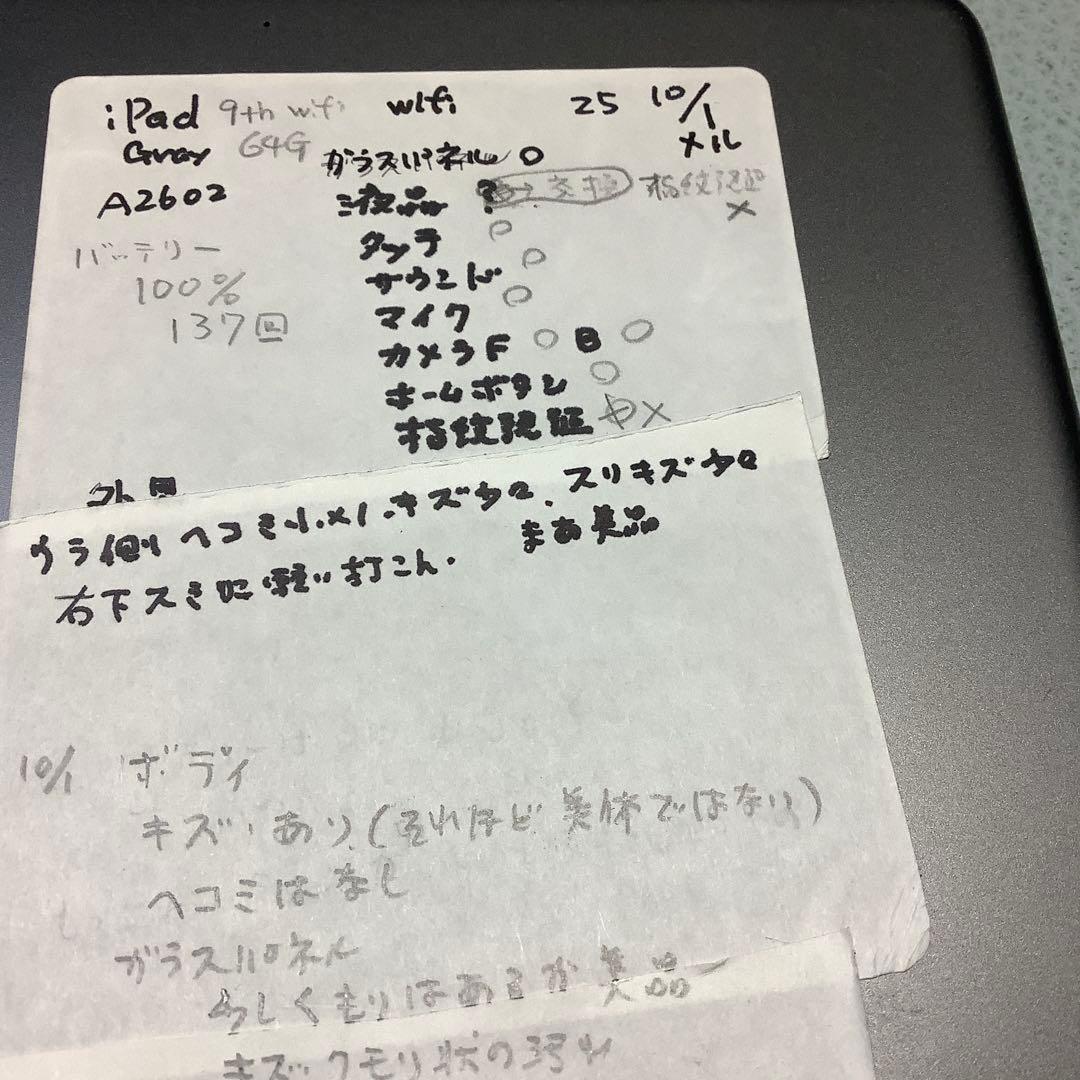 iPad 9th wifi wifi 25 10/1
Gray 64G ガラスパネル ○ メル
A2602 液晶 ? → 交換 指紋認証 ×
バッテリー タッチ ○
100% サウンド ○
137回 マイク ○
カメラF ○ B ○
ホームボタン ○
指紋認証 ×
ウラ側 ヘコミ小×1、キズ少々、スリキズ少々
右下スミに軽い打こん. まあ美品
10/1 ボディ
キズ あり(それほど美体ではない)
ヘコミはなし
ガラスパネル
少しくもりはあるが美品
キズ クモリ状の弱い